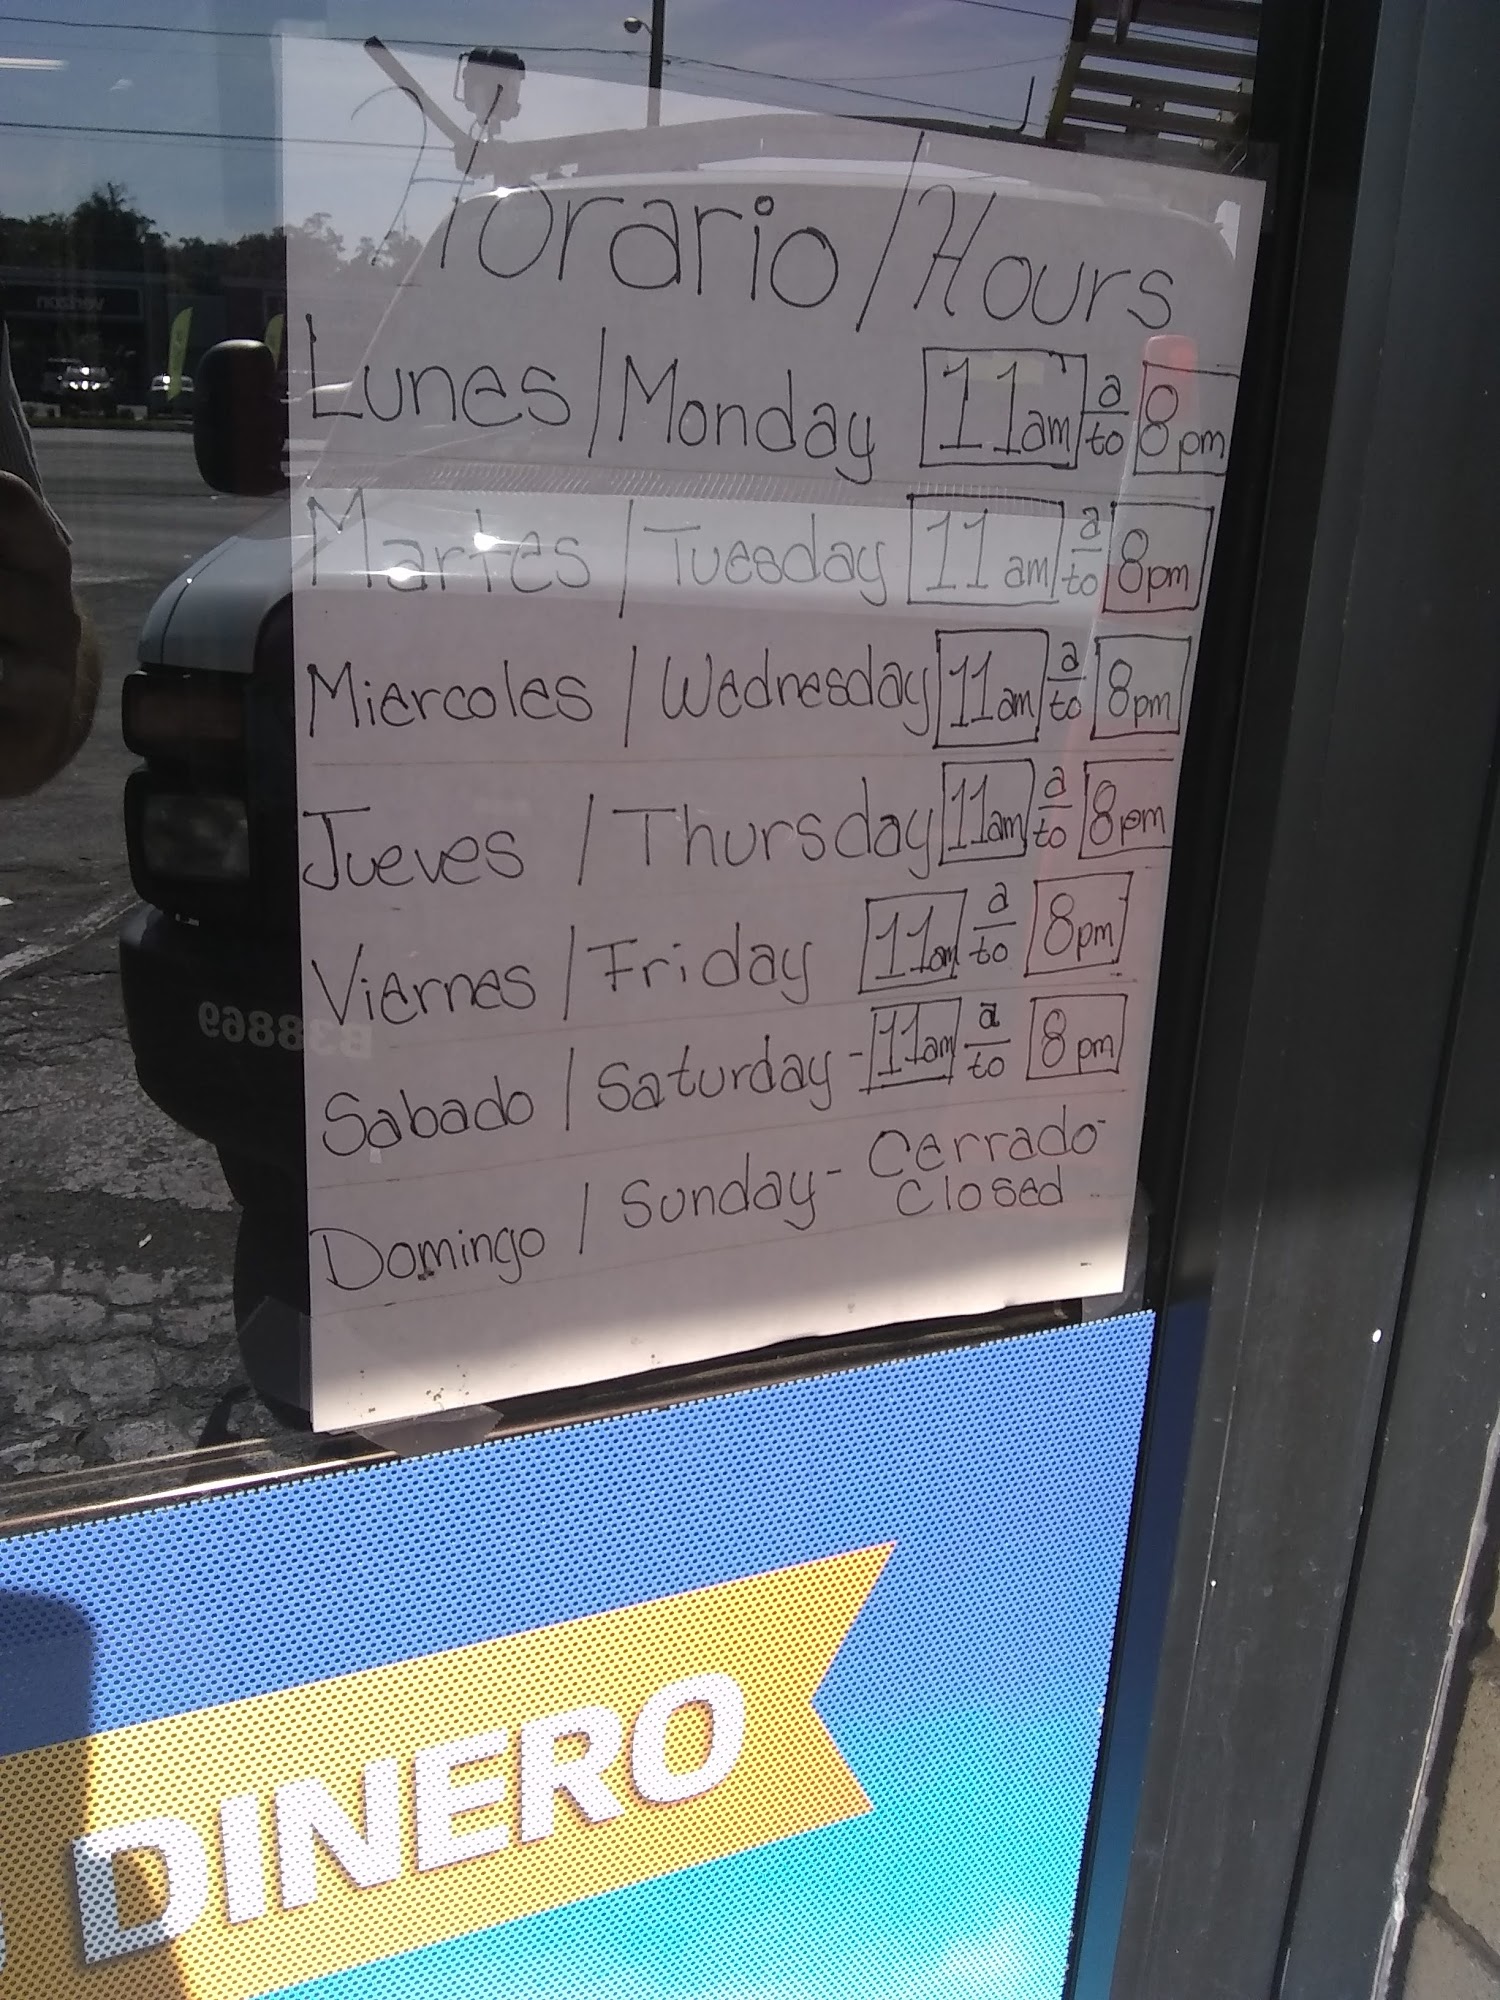 Horario/Hours
Lunes/Monday 11am a/to 8pm
Martes/Tuesday 11am a/to 8pm
Miercoles/Wednesday 11am a/to 8pm
Jueves/Thursday 11am a/to 8pm
Viernes/Friday 11am a/to 8pm
Sabado/Saturday-11am a/to 8pm
Domingo/Sunday-Cerrado
Closed
verizon
B38869
DINERO